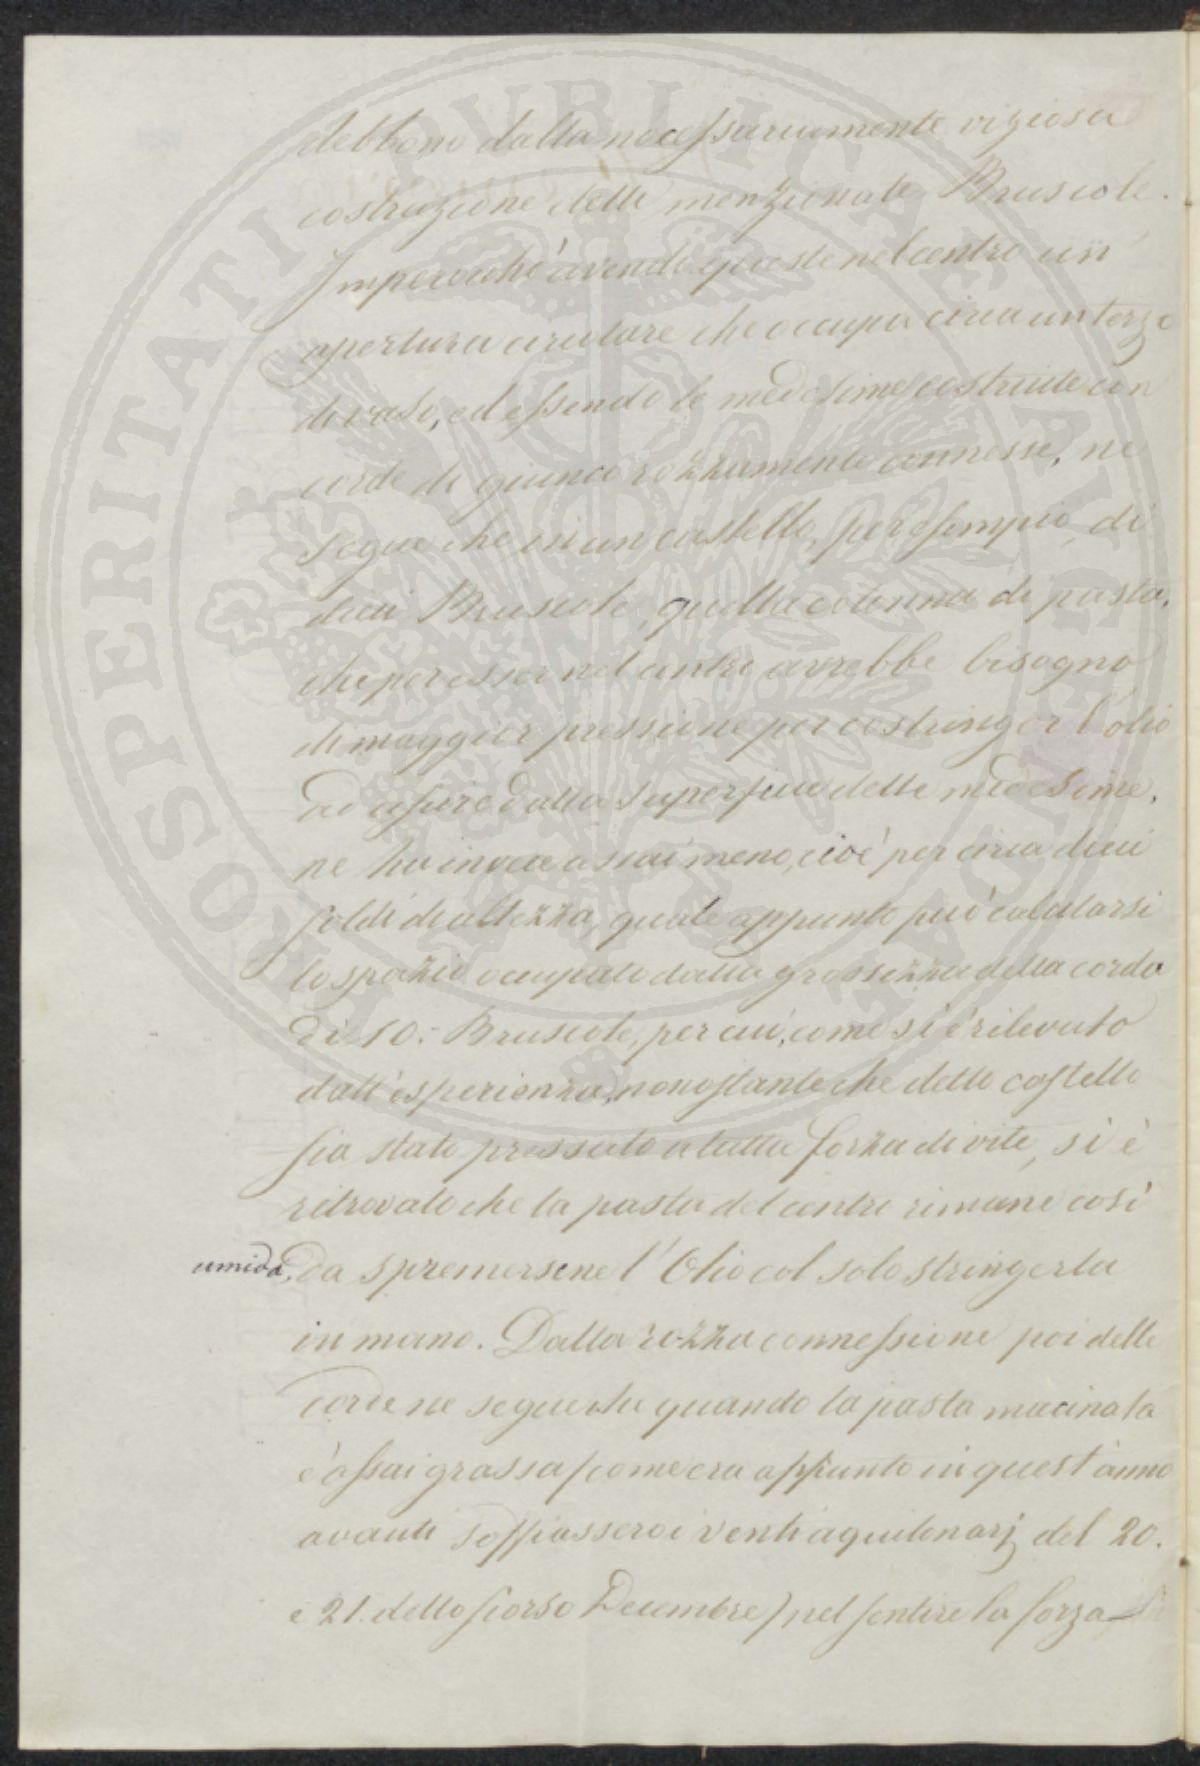 debbono dalla necessariamente viziosa
costruzione delle menzionate Bruscole.
Imperocchè avendo queste nel centro un
apertura circolare che occupa circa un terzo
di vaso, ed essendo le medesime costruite con
corde di giunco rozzamente connesse, ne
segue che in un castello, per esempio, di
dieci Bruscole, quella colonna di pasta,
che per esser nel centro avrebbe bisogno
di maggior pressione per costringer l'olio
ad uscire dalla superficie delle medesime,
ne ha invece assai meno, cioè per circa dieci
soldi di altezza, quale appunto può calcolarsi
lo spazio occupato dalla grossezza della corda
di 10: Bruscole, per cui, come si è rilevato
dall'esperienza, nonostante che detto castello
sia stato pressato a tutta forza di vite, si è
ritrovato che la pasta del centro rimane così
umida, da spremersene l'Olio col solo stringerla
in mano. Dalla rozza connessione poi delle
corde ne segue che quando la pasta macinata
è assai grassa (come era appunto in quest'anno
avanti soffiassero i venti aquilonarj del 20.
e 21. dello scorso Decembre) nel sentire la forza
PROSPERITATI PUBLICAE AUGENDAE